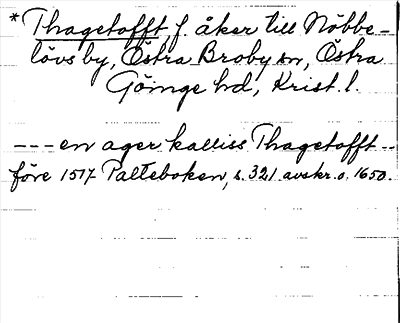 *Thagetofft, f. åker till Nöbbe-
lövs by, Östra Broby sn, Östra
Göinge hd, Krist. l.
--- en ager kalliss Thagetofft --
före 1517 Palteboken, s. 321 avskr. o. 1650.